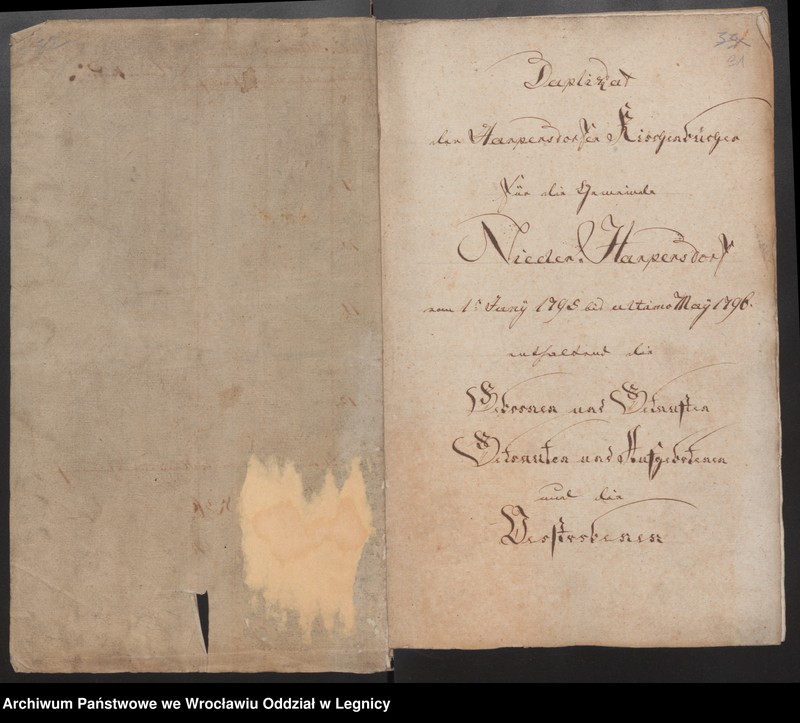 21
Duplikat
der Harpersdorfer Kirchenbücher
für die Gemeinde
Nieder Harpersdorf
vom 1t Juny 1795 bis ultimo May 1796.
enthaltend die
Gebornen und Getauften
Getrauten und Aufgebotenen
und die
Verstorbenen
Archiwum Państwowe we Wrocławiu Oddział w Legnicy